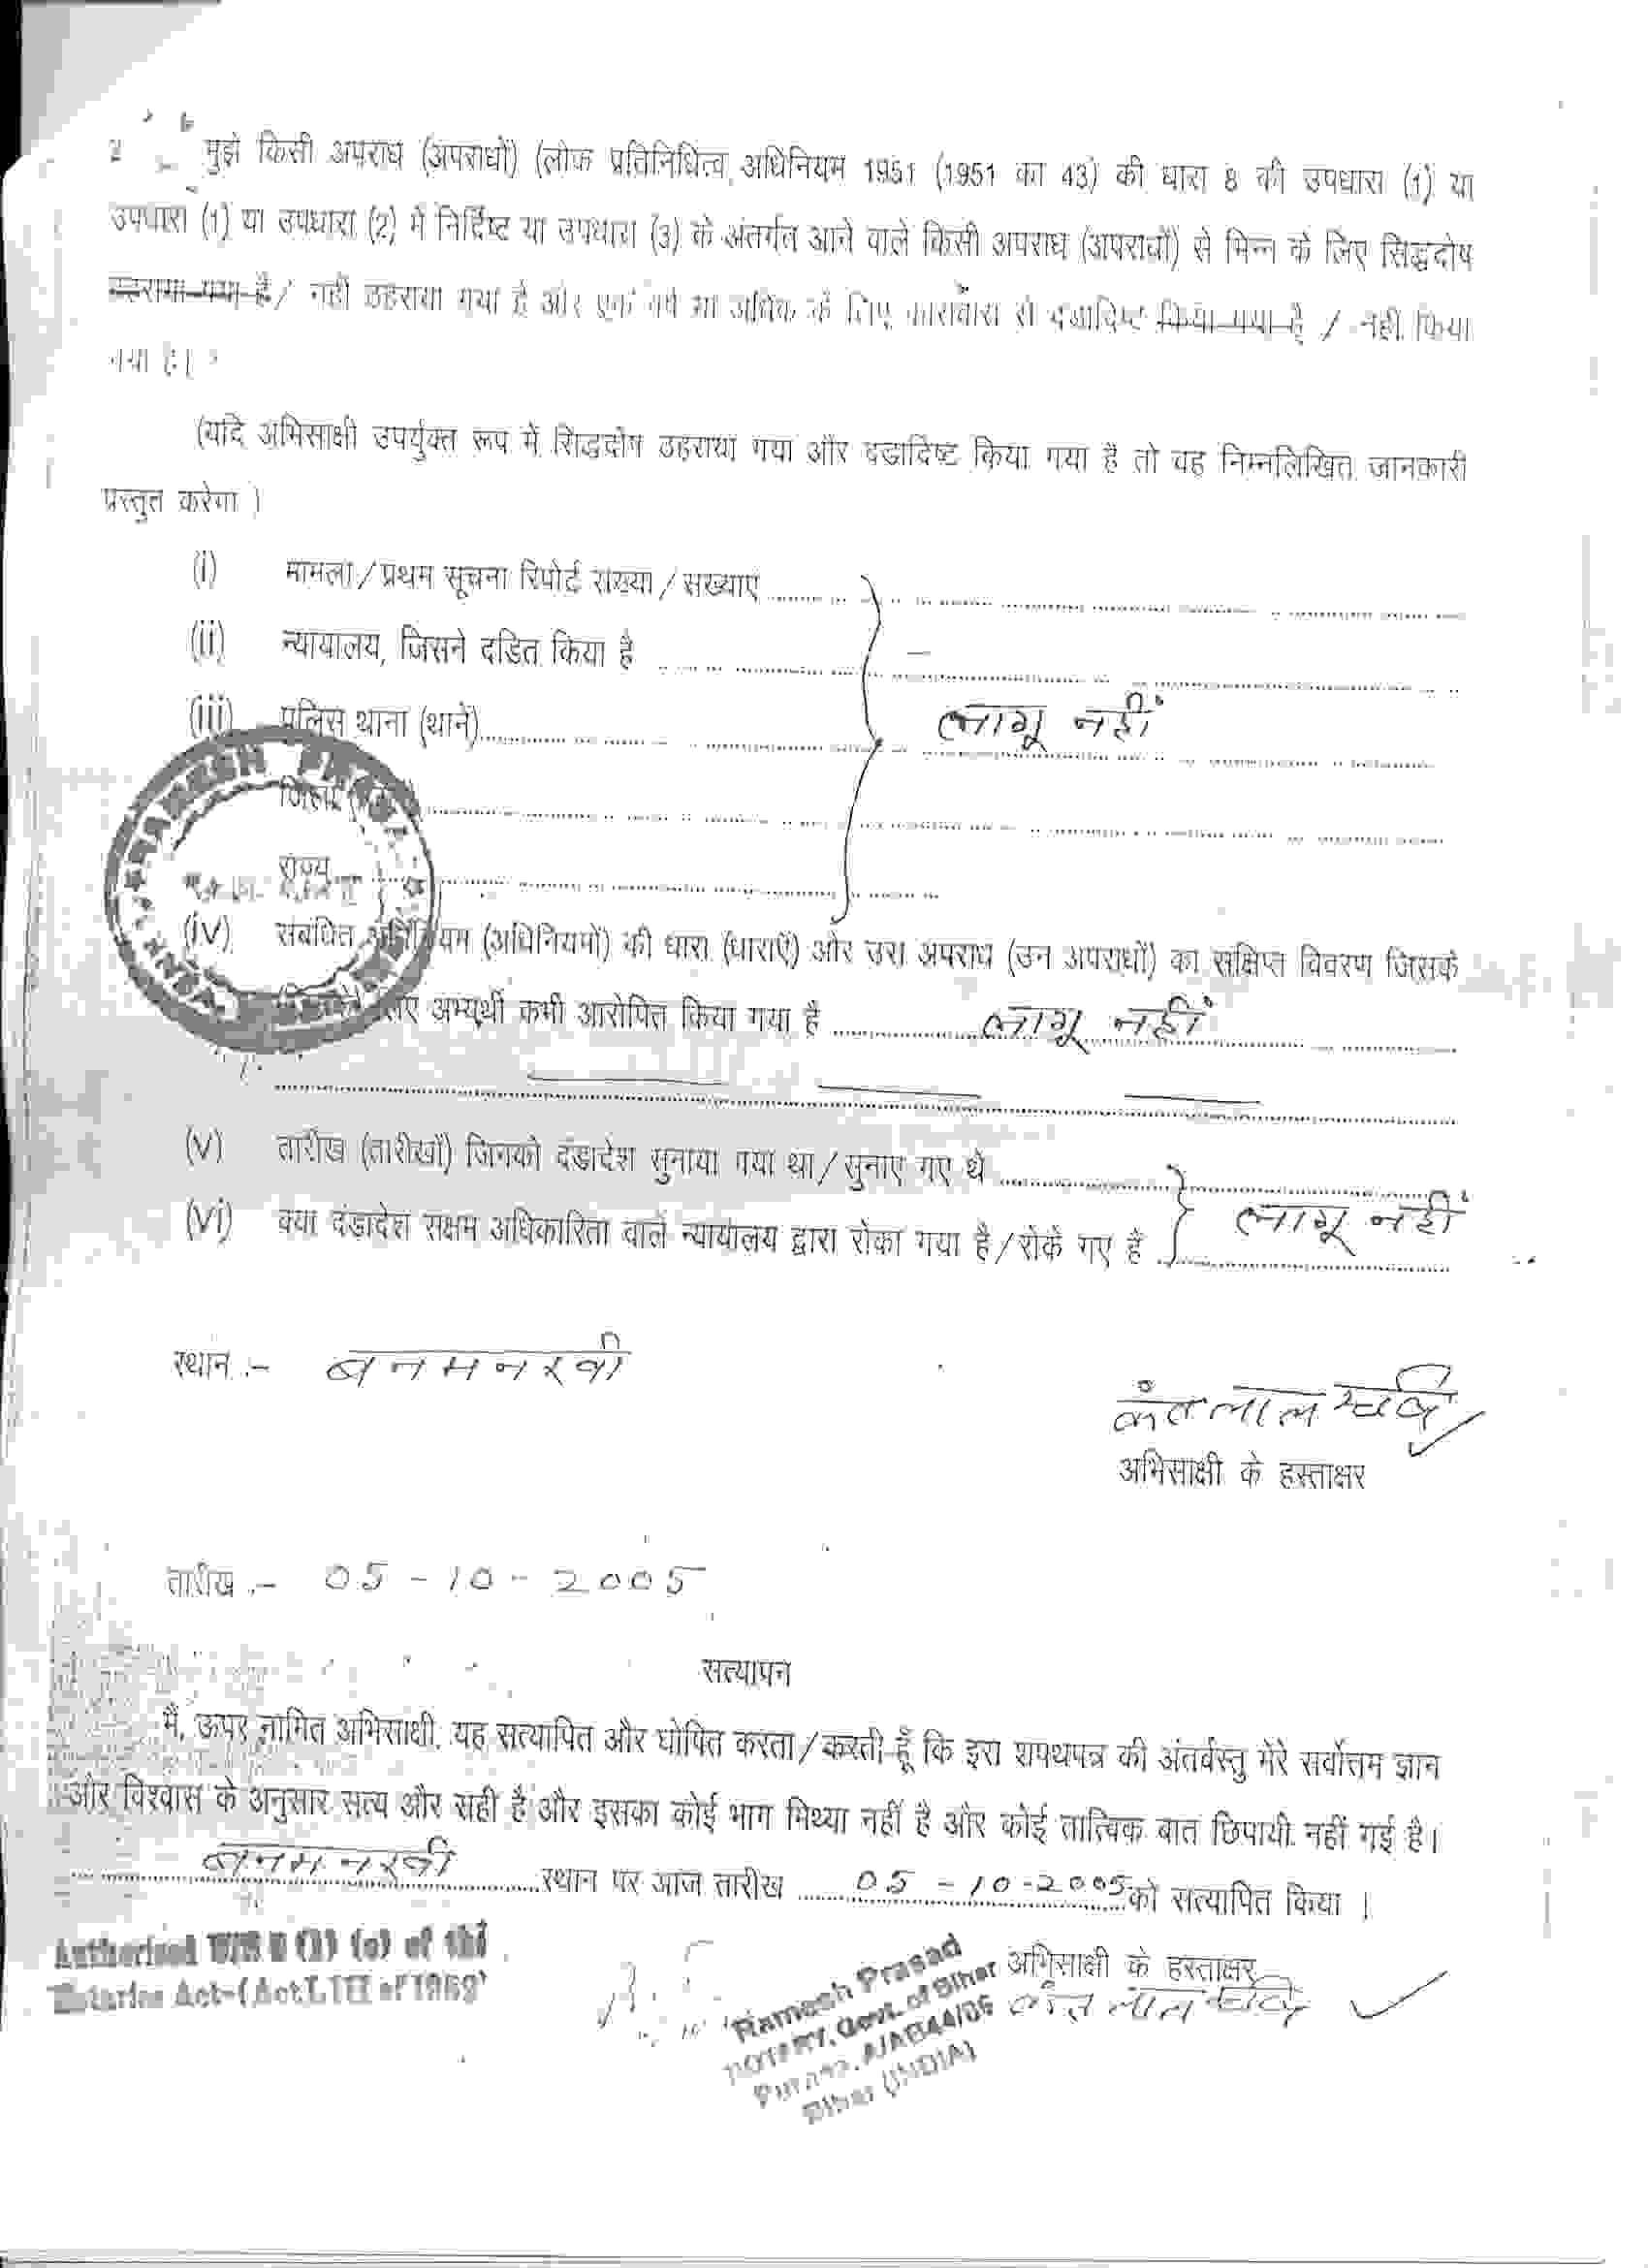 2 मुझे किसी अपराध (अपराधों) (लोक प्रतिनिधित्व अधिनियम 1951 (1951 का 43) की धारा 8 की उपधारा (1) या
उपधारा (1) या उपधारा (2) में निर्दिष्ट या उपधारा (3) के अंतर्गत आने वाले किसी अपराध (अपराधों) से भिन्न के लिए सिद्धदोष
ठहराया गया है / नहीं ठहराया गया है और एक वर्ष या अधिक के लिए कारावास से दंडादिष्ट किया गया है / नहीं किया
गया है।
(यदि अभिसाक्षी उपर्युक्त रूप में सिद्धदोष ठहराया गया और दंडादिष्ट किया गया है तो वह निम्नलिखित जानकारी
प्रस्तुत करेगा )
(i) मामला/प्रथम सूचना रिपोर्ट संख्या/संख्याएं
(ii) न्यायालय, जिसने दंडित किया है
(iii) पुलिस थाना (थाने) लागू नहीं
जिला
राज्य
(iv) संबंधित अधिनियम (अधिनियमों) की धारा (धाराएँ) और उस अपराध (उन अपराधों) का संक्षिप्त विवरण जिसके
लिए अभ्यर्थी कभी आरोपित किया गया है लागू नहीं
(v) तारीख (तारीखों) जिनको दंडादेश सुनाया गया था/सुनाए गए थे
(vi) क्या दंडादेश सक्षम अधिकारिता वाले न्यायालय द्वारा रोका गया है/रोके गए है लागू नहीं
स्थान :- बनमनखी
अभिसाक्षी के हस्ताक्षर
तारीख :- 05-10-2005
सत्यापन
मैं, ऊपर नामित अभिसाक्षी, यह सत्यापित और घोषित करता/करती हूँ कि इस शपथपत्र की अंतर्वस्तु मेरे सर्वोत्तम ज्ञान
और विश्वास के अनुसार सत्य और सही है और इसका कोई भाग मिथ्या नहीं है और कोई तात्विक बात छिपायी नहीं गई है।
बनमनखी स्थान पर आज तारीख 05-10-2005 को सत्यापित किया ।
अभिसाक्षी के हस्ताक्षर
Authorised U/S 8 (1) (e) of the
Notaries Act-(Act LIII of 1952)
Ramesh Prasad
NOTARY, Govt. of Bihar
Bihar (INDIA)